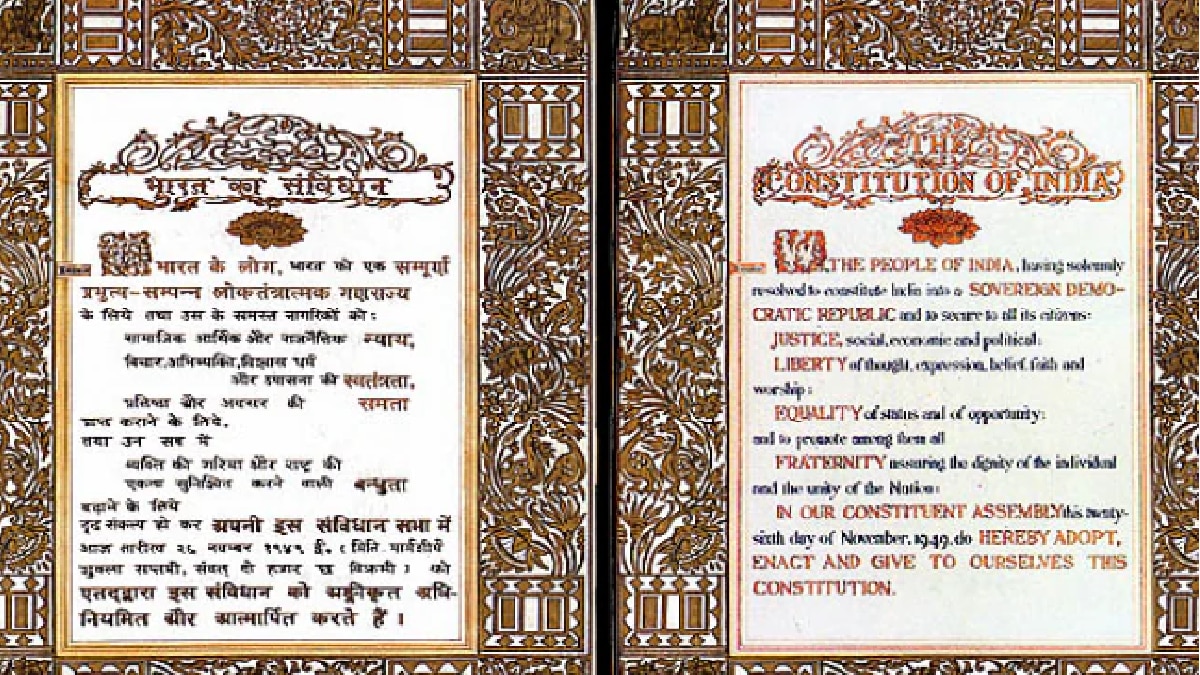 भारत का संविधान
भारत के लोग, भारत को एक सम्पूर्ण
प्रभुत्व-सम्पन्न लोकतंत्रात्मक गणराज्य
के लिये तथा उस के समस्त नागरिकों को:
सामाजिक आर्थिक और राजनैतिक न्याय,
विचार,अभिव्यक्ति,विश्वास धर्म
और उपासना की स्वतंत्रता,
प्रतिष्ठा और अवसर की समता
प्राप्त कराने के लिये,
तथा उन सब में
व्यक्ति की गरिमा और राष्ट्र की
एकता सुनिश्चित करने वाली बन्धुता
बढ़ाने के लिये
दृढ़ संकल्प हो कर अपनी इस संविधान सभा में
आज तारीख २६ नवम्बर १९४९ ई. ( मिति मार्गशीर्ष
शुक्ला सप्तमी, संवत् दो हजार छ विक्रमी ) को
एतद्द्वारा इस संविधान को अङ्गीकृत अधि-
नियमित और आत्मार्पित करते हैं ।
THE
CONSTITUTION OF INDIA
WE, THE PEOPLE OF INDIA, having solemnly
resolved to constitute India into a SOVEREIGN DEMO-
CRATIC REPUBLIC and to secure to all its citizens:
JUSTICE, social, economic and political;
LIBERTY of thought, expression, belief, faith and
worship;
EQUALITY of status and of opportunity;
and to promote among them all
FRATERNITY assuring the dignity of the individual
and the unity of the Nation;
IN OUR CONSTITUENT ASSEMBLY this twenty-
sixth day of November, 1949, do HEREBY ADOPT,
ENACT AND GIVE TO OURSELVES THIS
CONSTITUTION.